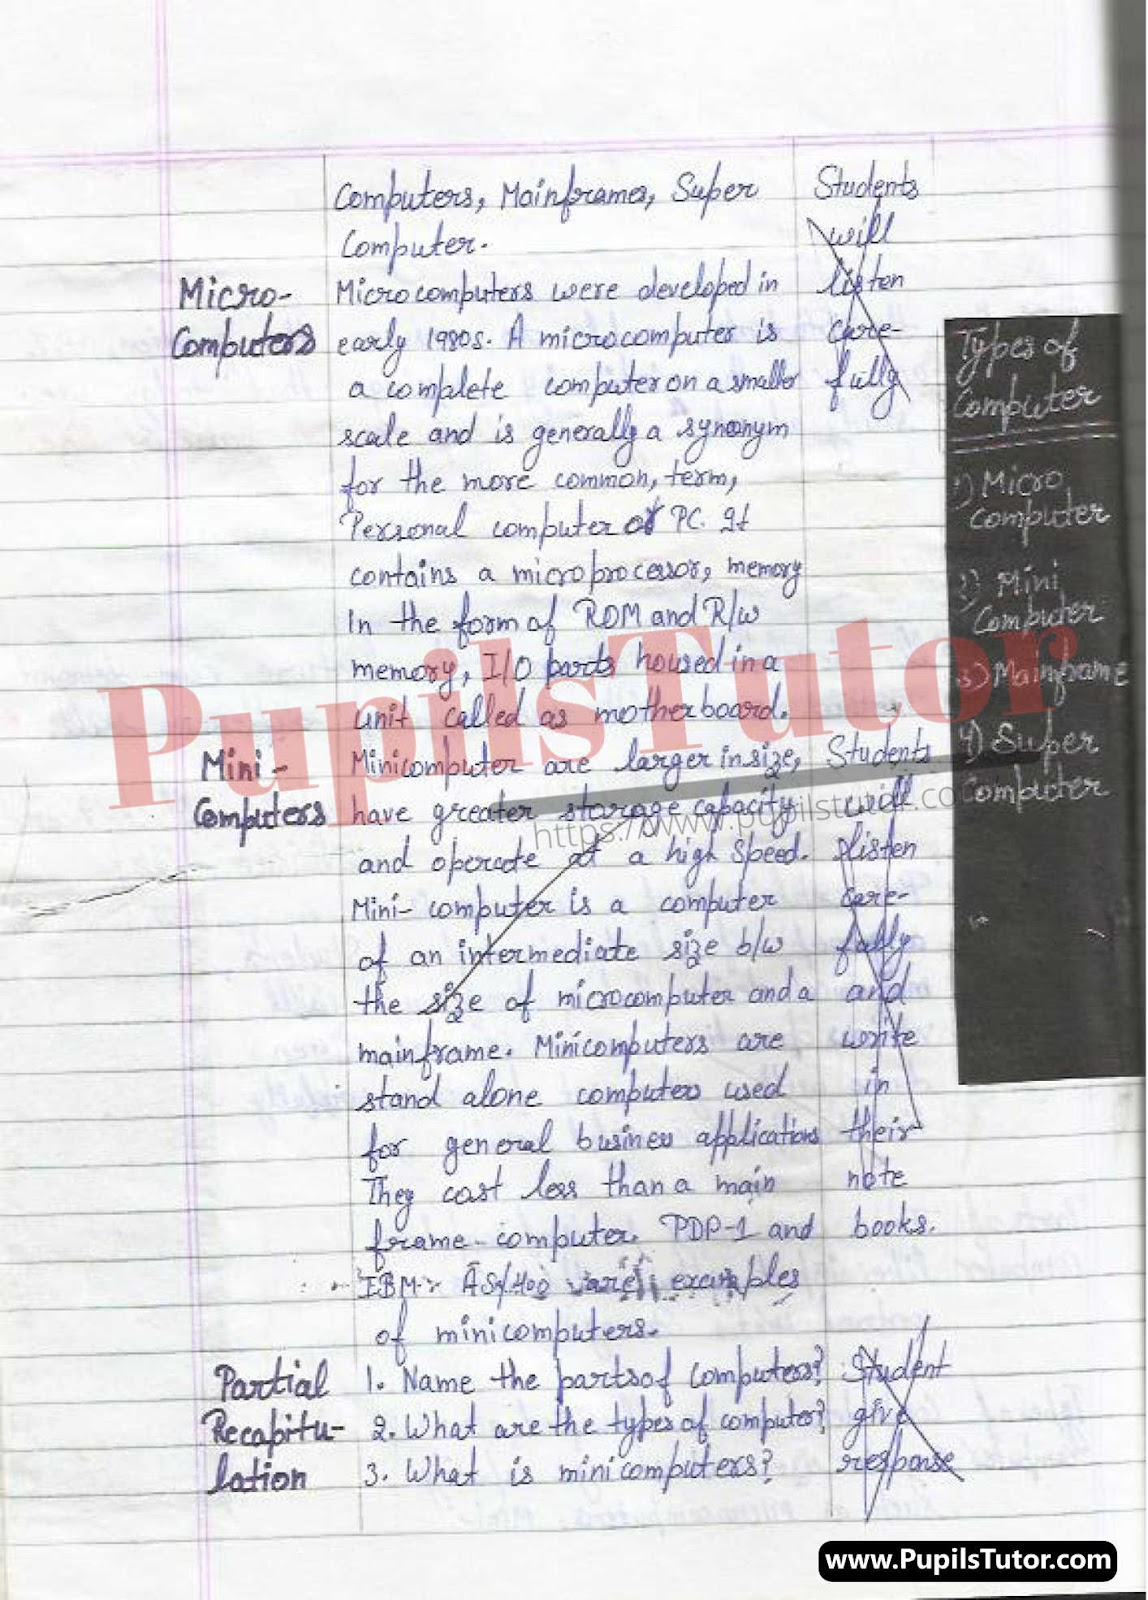 Computers, Mainframes, Super
Computer.
Students
will
listen
care-
fully
Micro-
Computers
Microcomputers were developed in
early 1980s. A microcomputer is
a complete computer on a smaller
scale and is generally a synonym
for the more common, term,
Personal computer or PC. It
contains a microprocessor, memory
In the form of ROM and R/w
memory, I/O ports housed in a
unit called as motherboard.
Mini-
Computers
Minicomputer are larger in size,
have greater storage capacity
and operate at a high speed.
Mini- computer is a computer
of an intermediate size b/w
the size of microcomputer and a
mainframe. Minicomputers are
stand alone computers used
for general business applications
They cost less than a main
frame-computer. PDP-1 and
IBM- AS/400 are examples
of minicomputers.
Students
will
listen
care-
fully
and
write
in
their
note
books.
Partial
Recapitu-
lation
1. Name the parts of computers?
2. What are the types of computer?
3. What is minicomputers?
Student
give
response
Types of
Computer
1) Micro
Computer
2) Mini
Computer
3) Mainframe
4) Super
Computer
PupilsTutor
https://www.pupilstutor.co
www.PupilsTutor.com